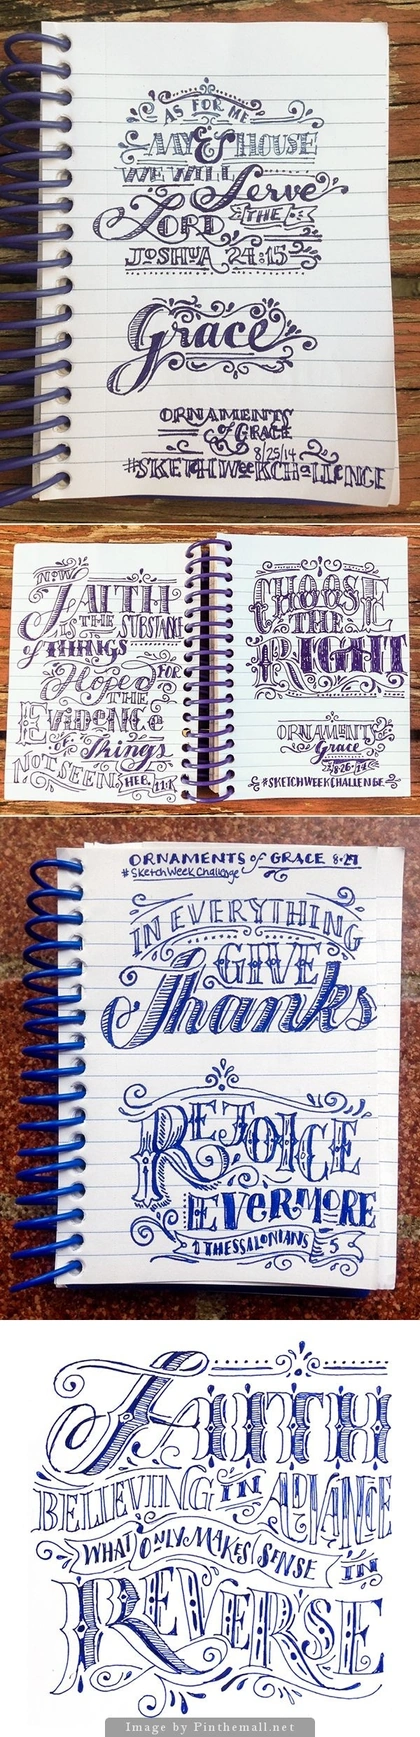 AS FOR ME
MY & HOUSE
WE WILL Serve
THE
LORD
JOSHUA 24:15
Grace
ORNAMENTS
of GRACE
8/25/14
#SKETCHWeeKCHaLLENGE
NOW
FAITH
IS THE SUBSTANCE
of THINGS
Hoped FOR
THE
EVIDENCe
of Things
NOT SEEN
HEB. 11:1
CHOOSE
THE
RIGHT
ORNAMENTS
of Grace
8·26·14
#SKETCHWEEKCHALLENGE
ORNAMENTS of GRACE 8·27
#SketchWeekChallenge
IN EVERYTHING
GIVE
Thanks
REJOICE
EVerMORE
1 THESSALONIANS 5
FAITH
BELIEVING IN ADVANCE
WHAT ONLY MAKES SENSE IN
REVERSE
Image by Pinthemall.net